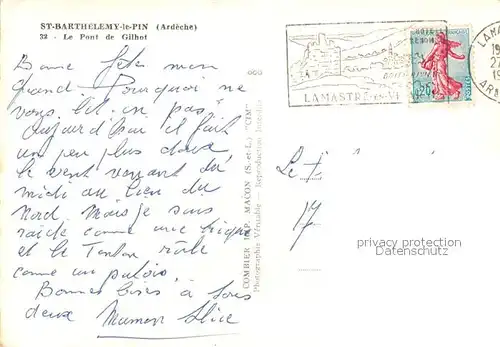 ST-BARTHELEMY-le-PIN (Ardèche)
32 - Le Pont de Gilhot
Bonne fête mon
grand Pourquoi ne
vous lit-on pas
Aujourd'hui il fait
un peu plus doux
le vent venant du
midi au lieu du
Nord Mais je suis
raide comme une trique
et le Tonton râle
comme un putois
Bonnes bises à tous
deux Maman Alice
COMBIER IMP. MACON (S.-et-L.) "CIM"
Photographie Véritable - Reproduction Interdite
LAMASTRE
0,25
LAMA
27
ARD
Le
17
privacy protection
Datenschutz